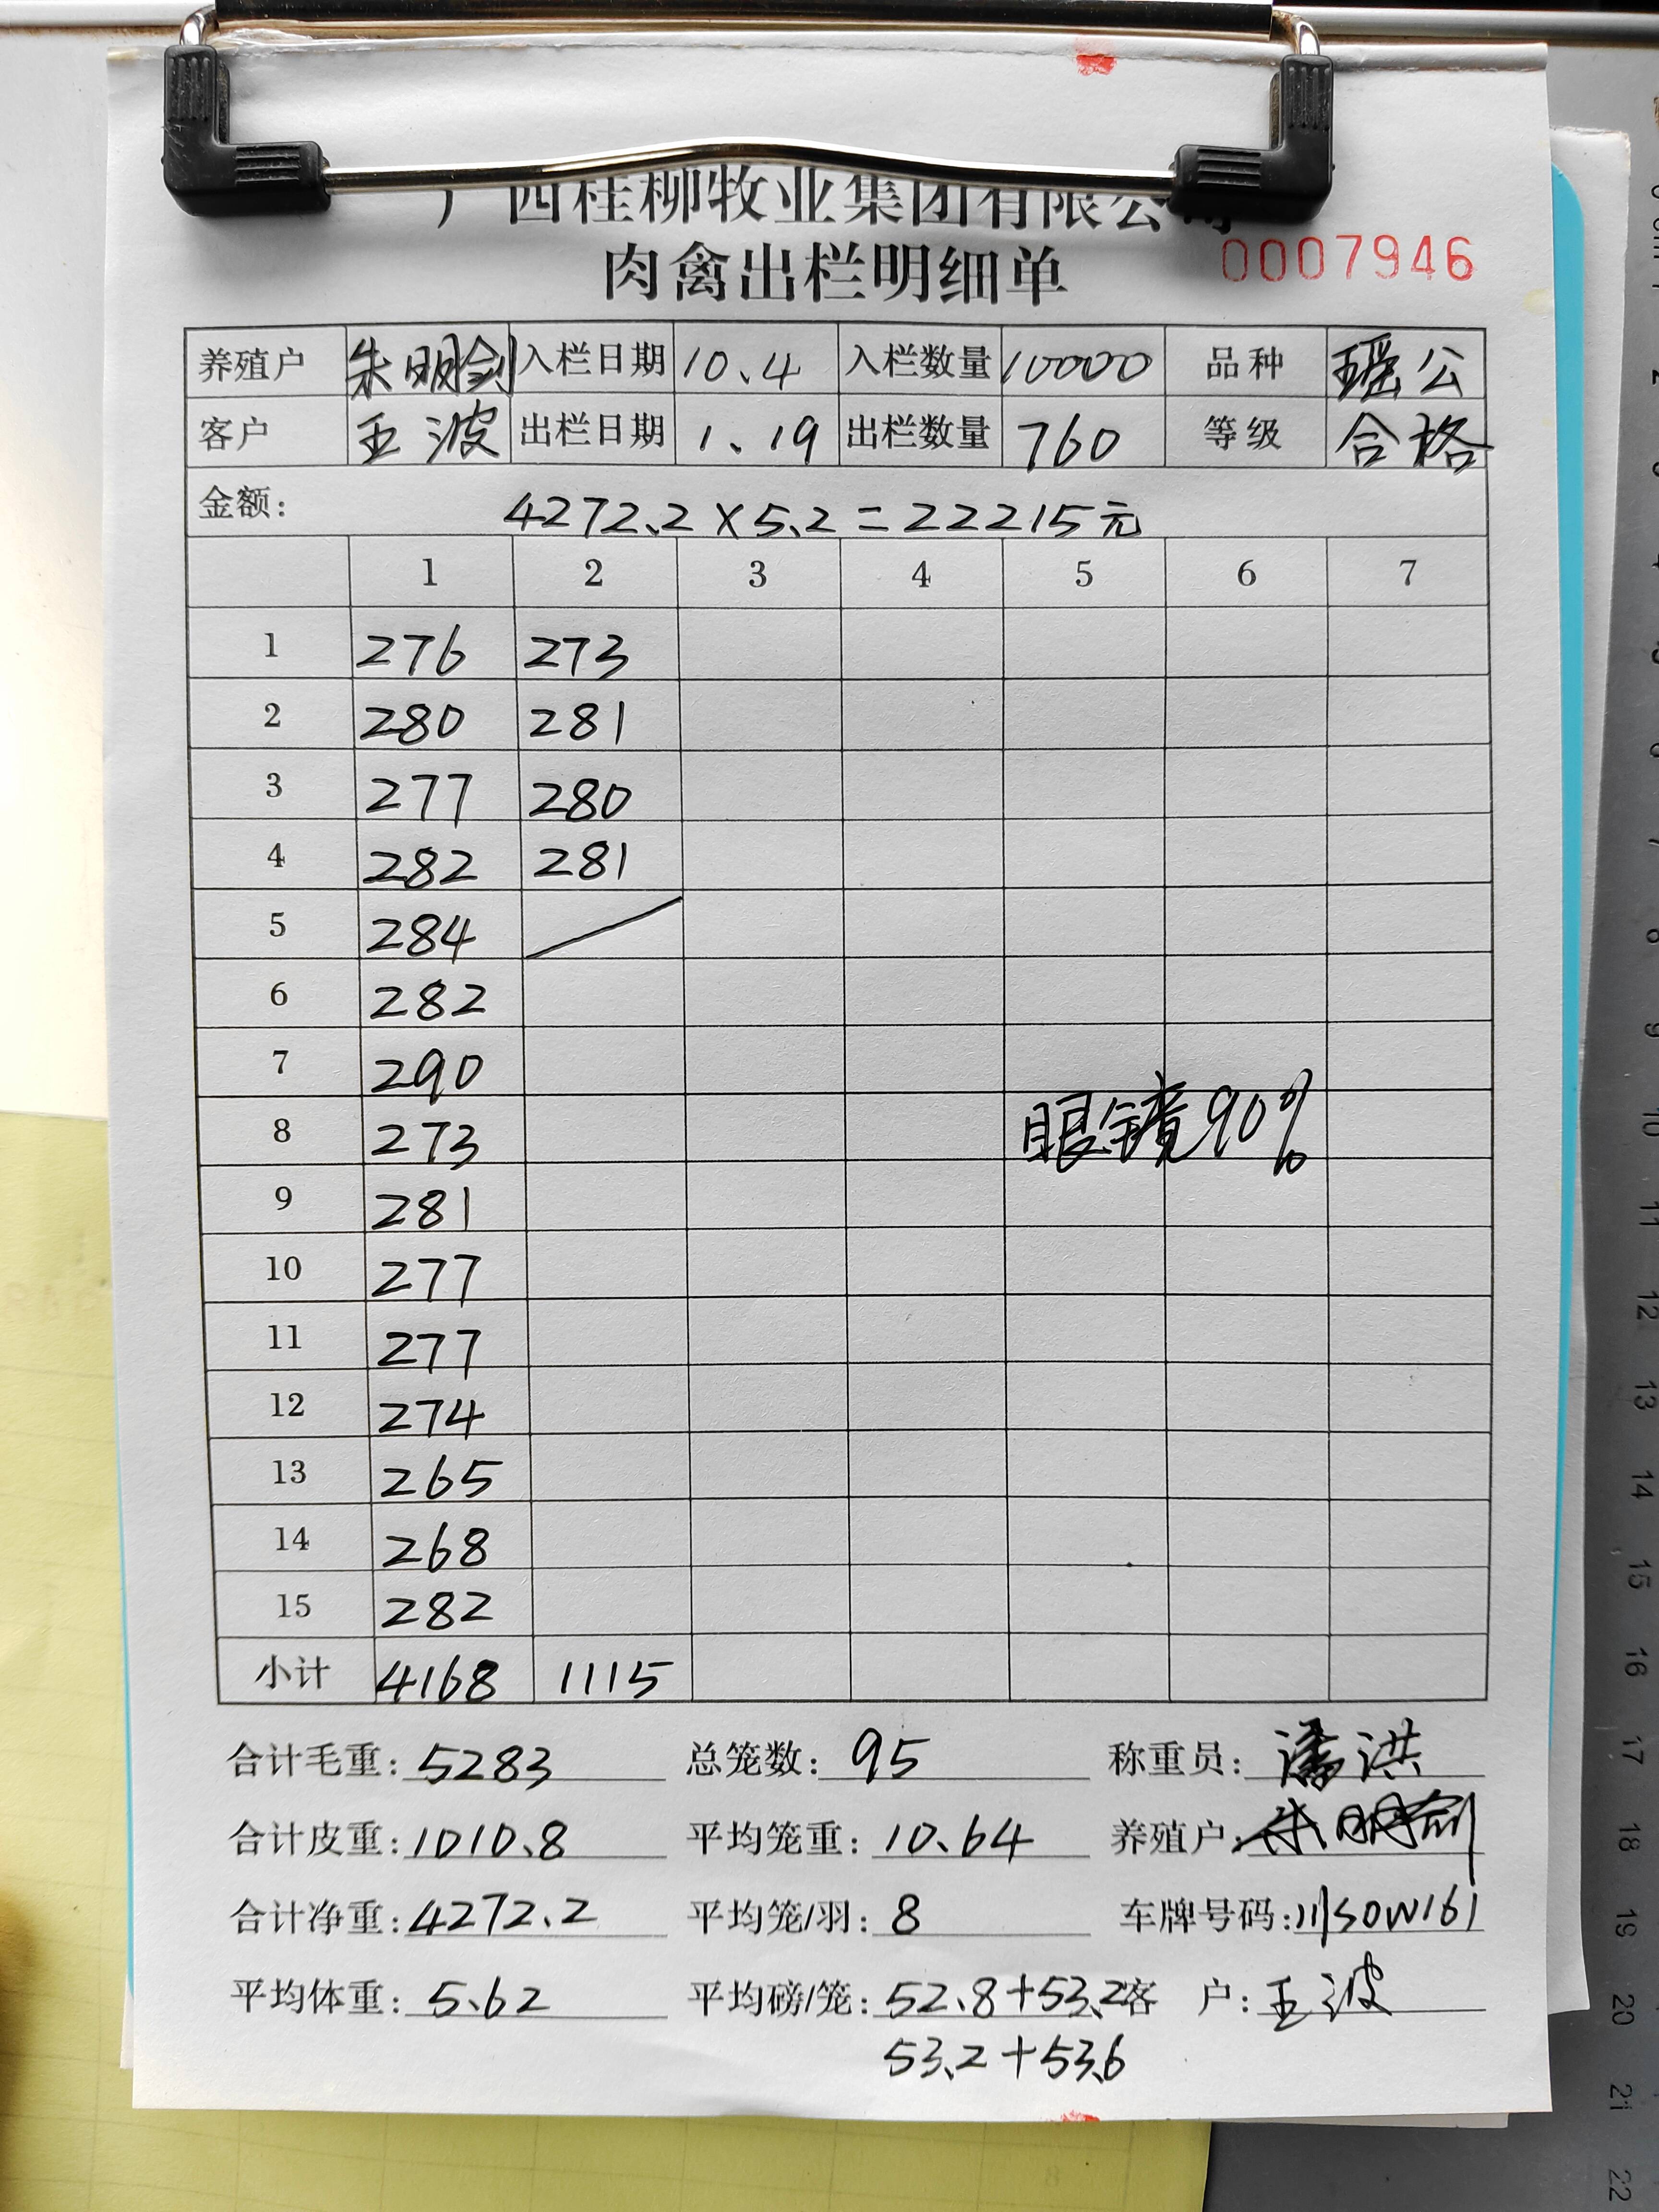 广西桂柳牧业集团有限公司
肉禽出栏明细单 0007946
养殖户 朱明剑 入栏日期 10.4 入栏数量 10000 品种 瑶公
客户 王波 出栏日期 1.19 出栏数量 760 等级 合格
金额: 4272.2×5.2=22215元
1 2 3 4 5 6 7
1 276 273
2 280 281
3 277 280
4 282 281
5 284
6 282
7 290
8 273 眼镜90%
9 281
10 277
11 277
12 274
13 265
14 268
15 282
小计 4168 1115
合计毛重: 5283 总笼数: 95 称重员: 潘洪
合计皮重: 1010.8 平均笼重: 10.64 养殖户: 朱明剑
合计净重: 4272.2 平均笼/羽: 8 车牌号码: 川S0W161
平均体重: 5.62 平均磅/笼: 52.8+53.2 客 户: 王波
53.2+53.6
9 10 11 12 13 14 15 16 17 18 19 20 21 22